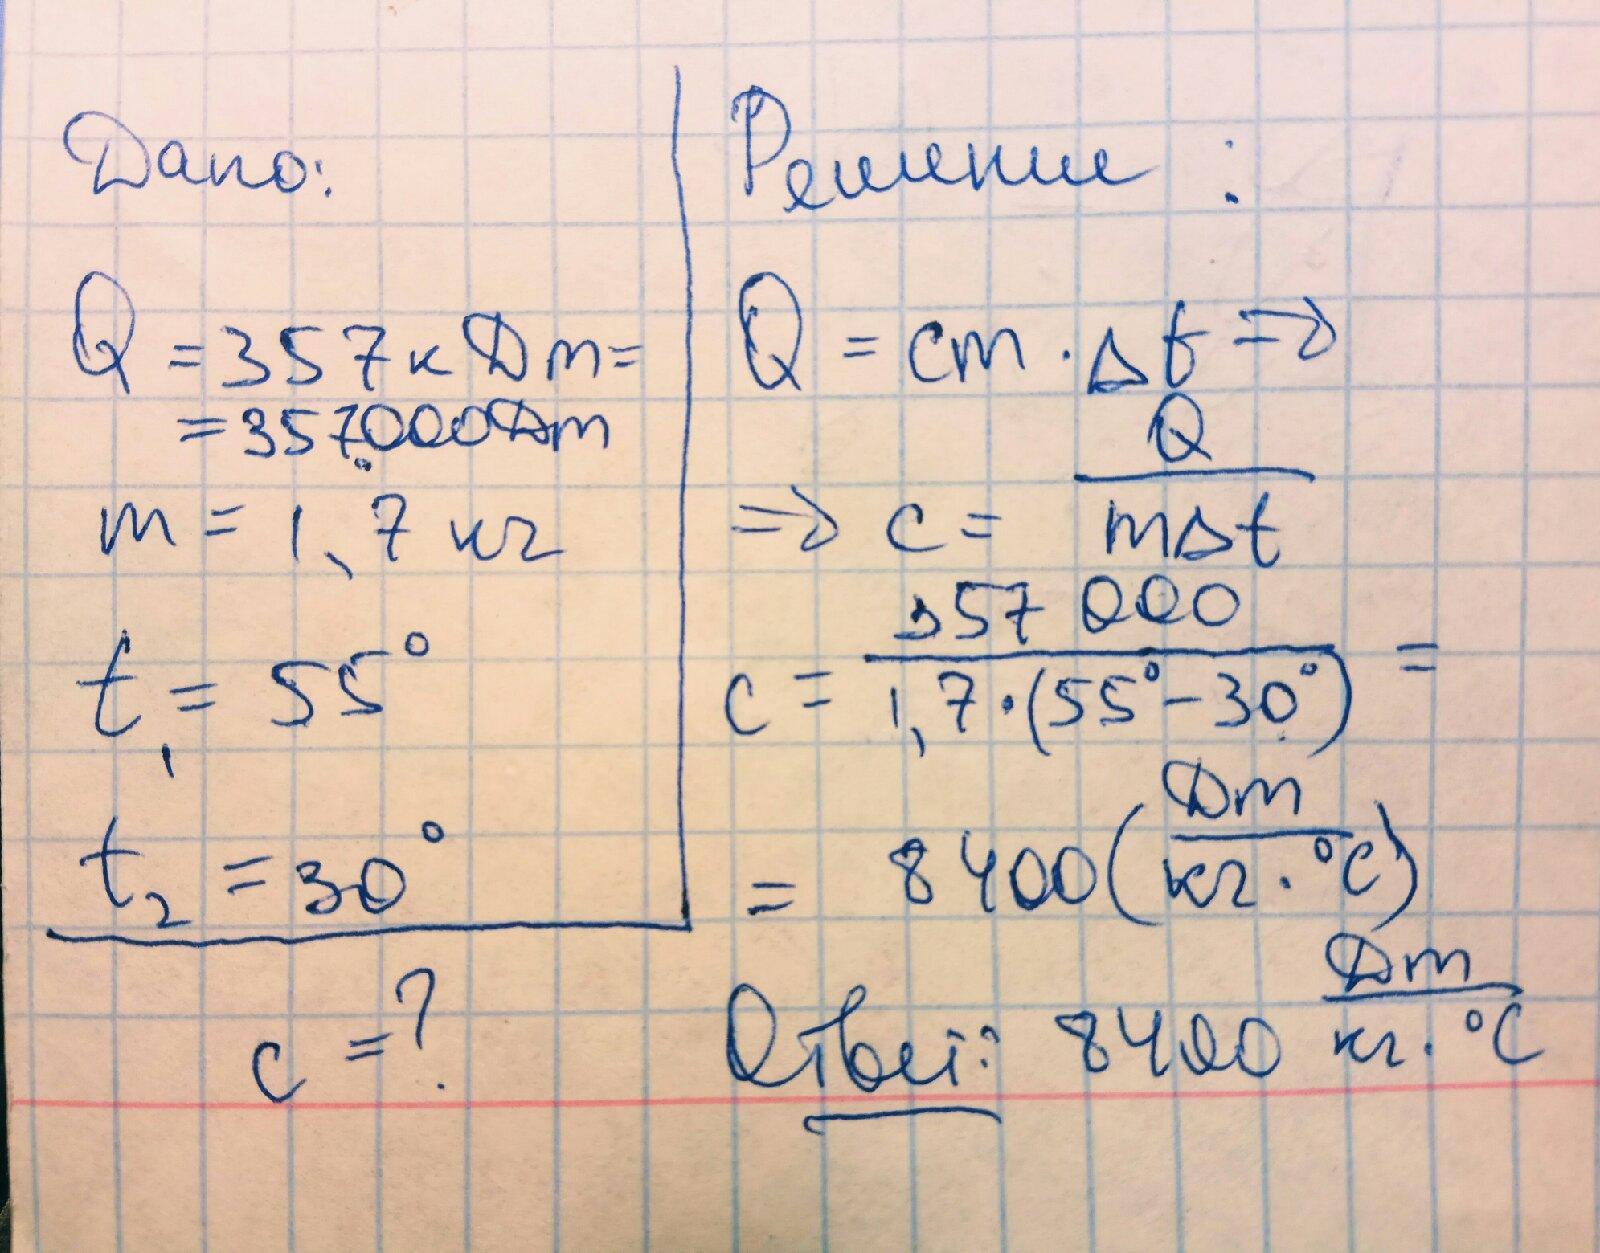 Дано:
Q = 357 кДж =
= 357000Дж
m = 1,7 кг
t₁ = 55°
t₂ = 30°
c = ?
Решение :
Q = cm · Δt ⇒
⇒ c = Q / mΔt
c = 357 000 / 1,7·(55°-30°) =
= 8400 (Дж / кг · °C)
Ответ: 8400 Дж / кг · °C